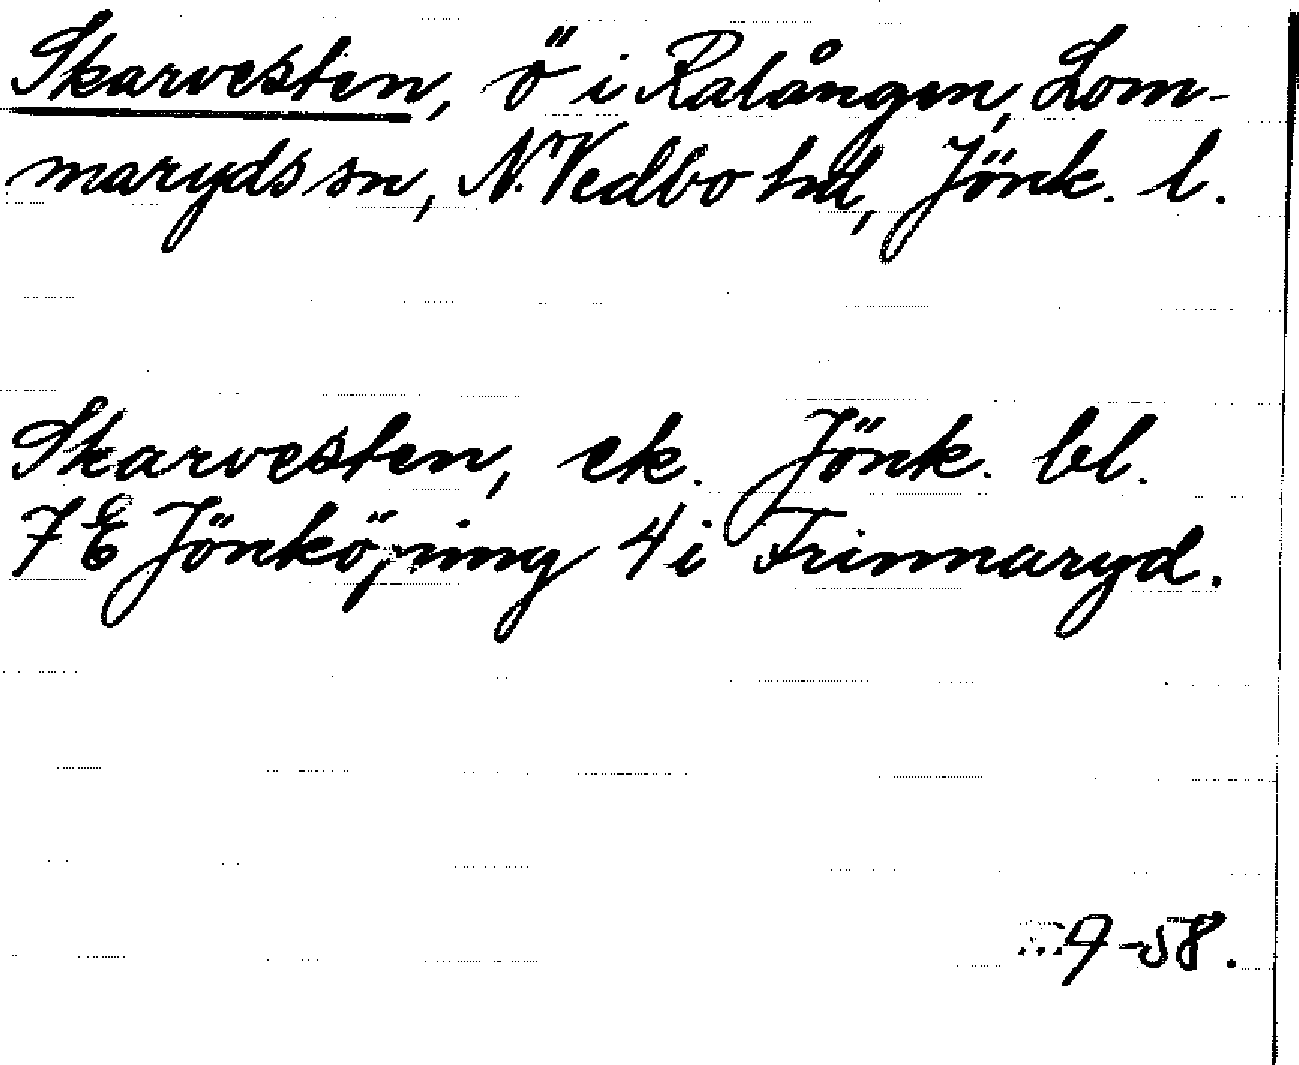 Skarvesten, ö i Ralången, Lom-
maryds sn, N. Vedbo hd, Jönk. l.
Skarvesten, ek. Jönk. bl.
7 E Jönköping 4 i Frinnaryd.
9-58.